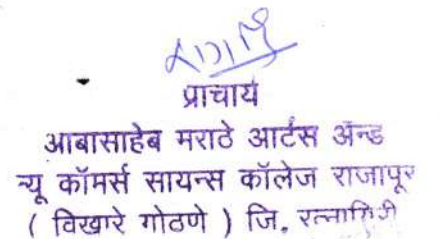 प्राचार्य
आबासाहेब मराठे आर्टस अ‍ॅन्ड
न्यू कॉमर्स सायन्स कॉलेज राजापूर
( विखारे गोठणे ) जि. रत्नागिरी